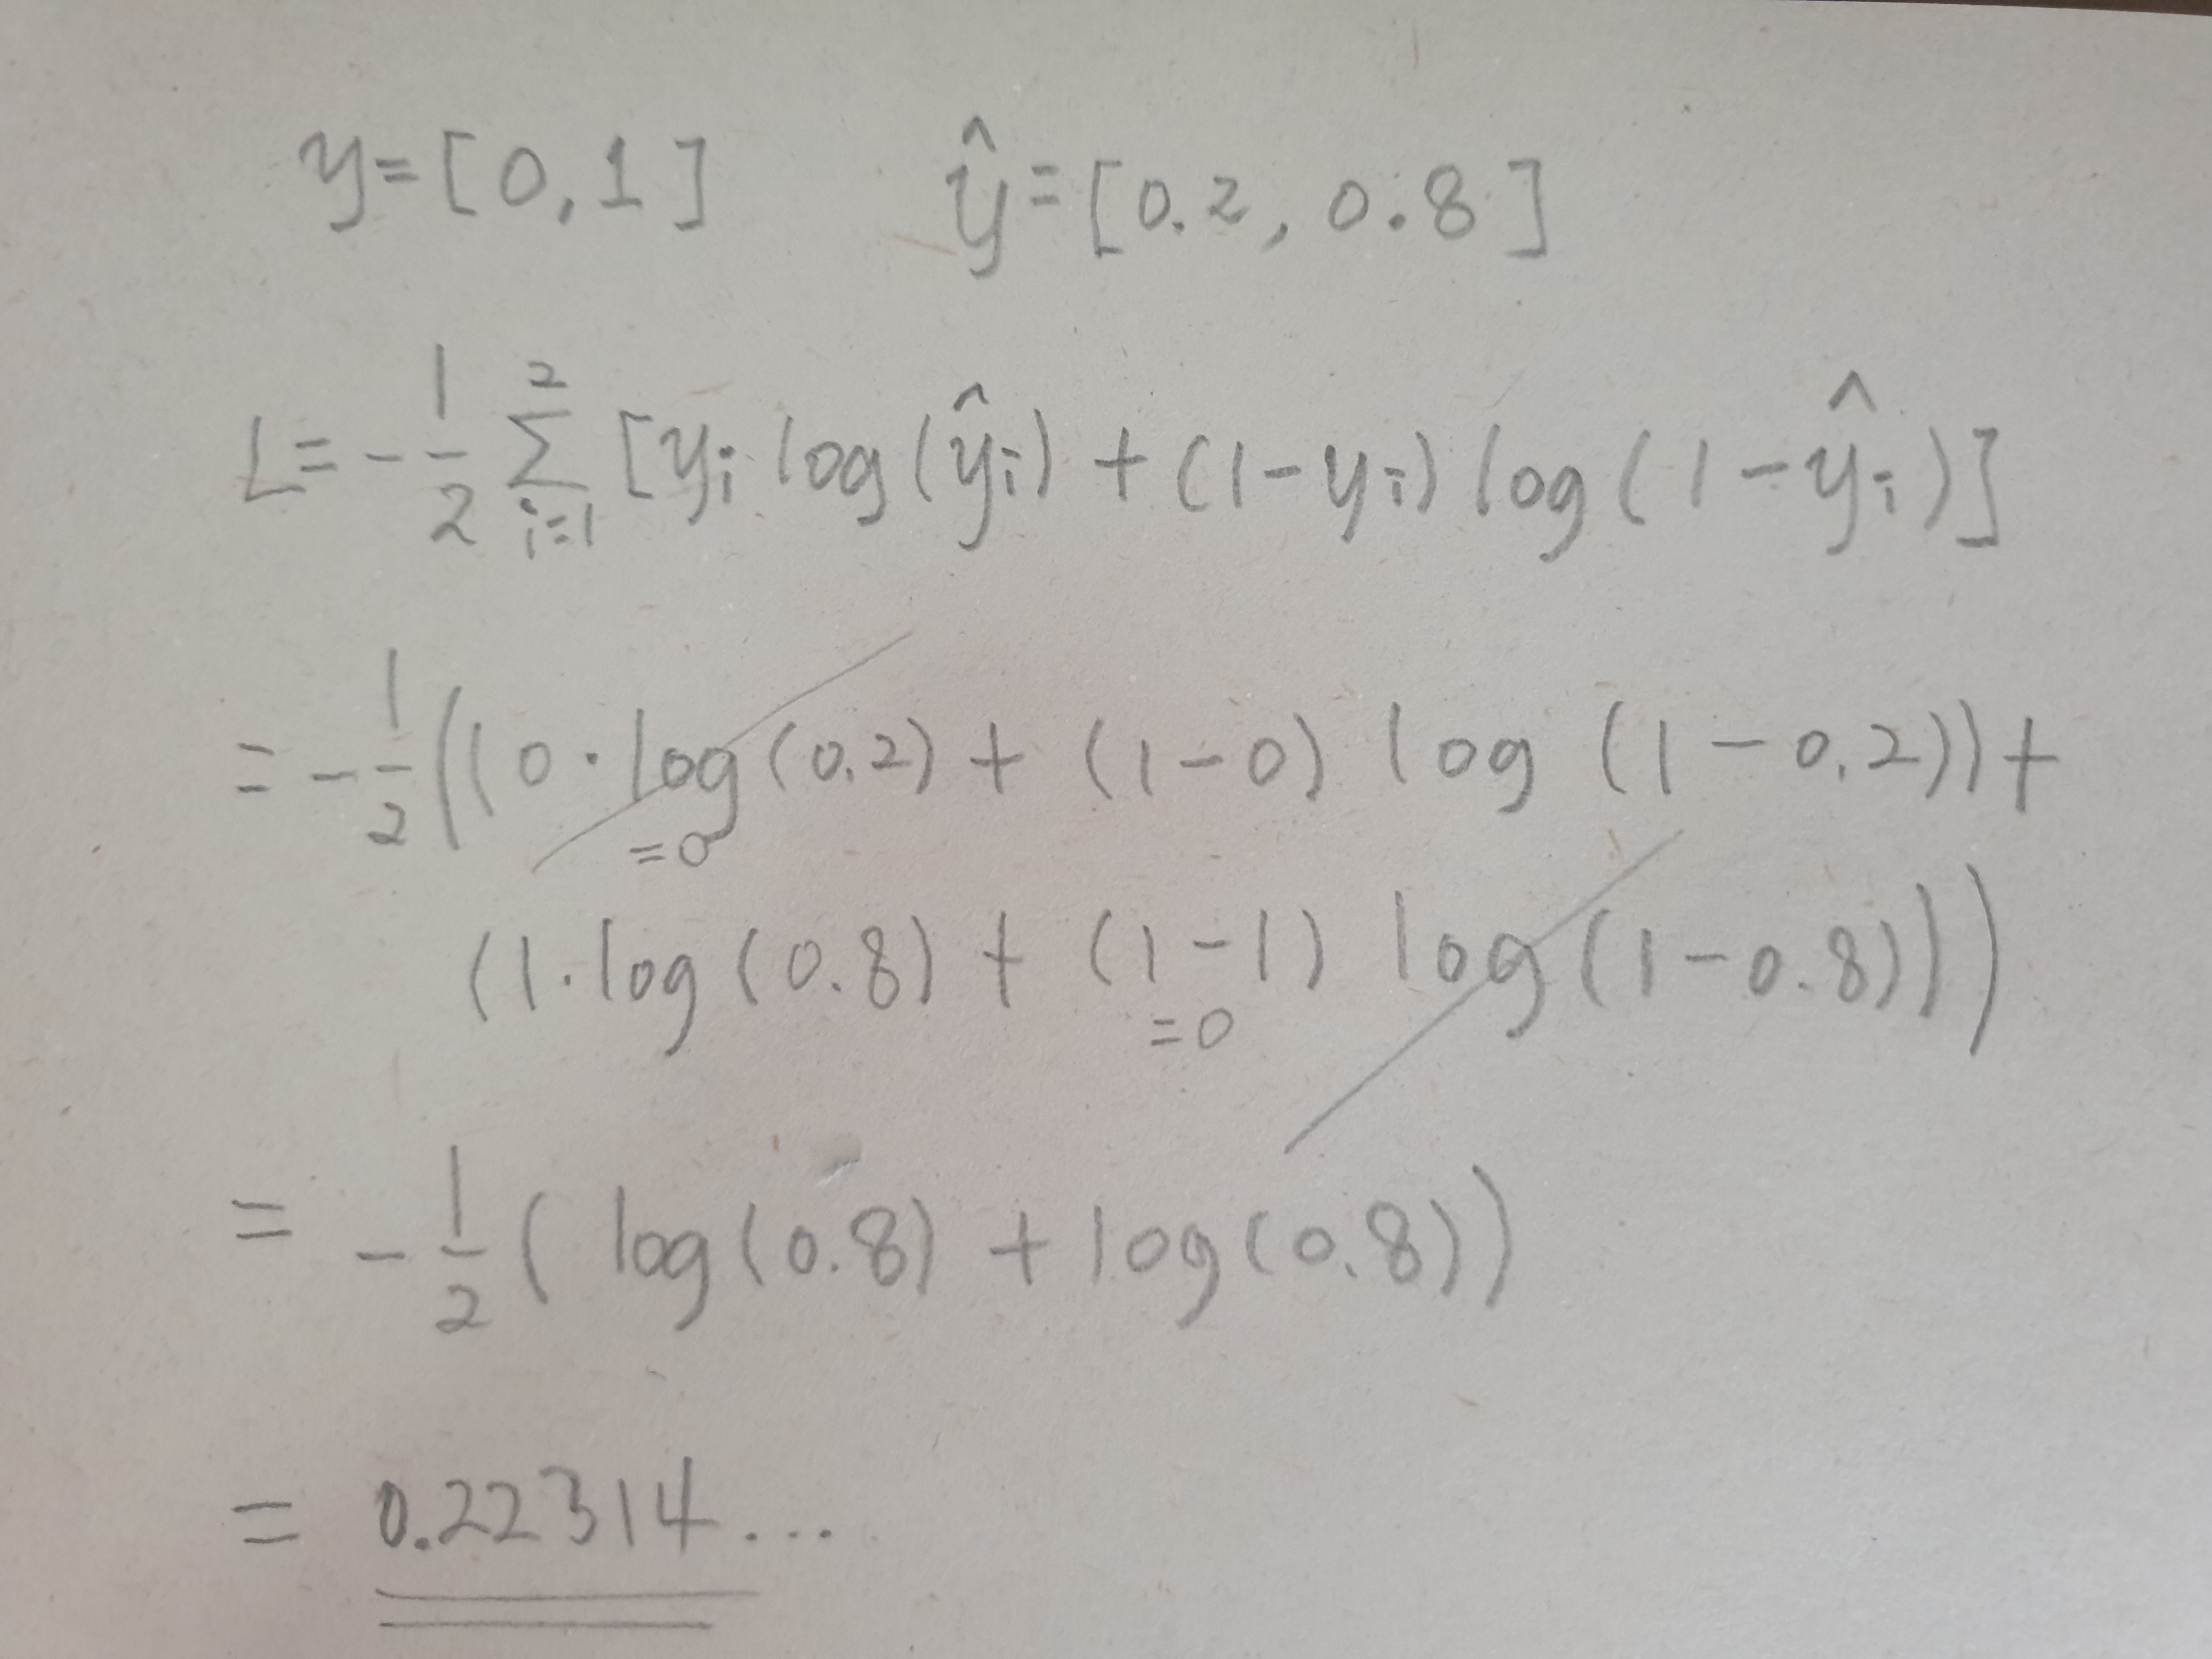 y = [0, 1]    ŷ = [0.2, 0.8]
L = -1/2 Σ_{i=1}^{2} [y_i log(ŷ_i) + (1 - y_i) log(1 - ŷ_i)]
= -1/2 ((0 · log(0.2) + (1-0) log (1-0.2)) +
=0
(1 · log(0.8) + (1-1) log(1-0.8)))
=0
= -1/2 (log(0.8) + log(0.8))
= 0.22314...